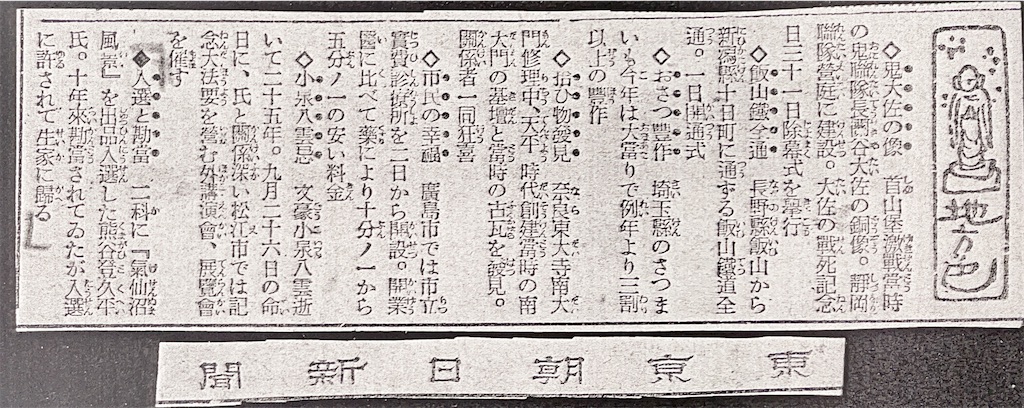 地方色
◇鬼大佐の像　首山堡激戰當時
の鬼聯隊長關谷大佐の銅像。靜岡
聯隊營庭に建設。大佐の戰死記念
日三十一日除幕式を擧行
◇飯山鐵全通　長野縣飯山から
新潟縣十日町に通ずる飯山鐵道全
通。一日開通式
◇おさつ豊作　埼玉縣のさつま
いも今年は大當りで例年より二割
以上の豊作
◇拾ひ物發見　奈良東大寺南大
門修理中、天平時代創建當時の南
大門の基壇と當時の古瓦を發見。
關係者一同狂喜
◇市民の幸福　廣島市では市立
實費診療所を二日から開設。開業
醫に比べて藥により十分ノ一から
五分ノ一の安い料金
◇小泉八雲忌　文豪小泉八雲逝
いて二十五年。九月二十六日の命
日に、氏と關係深い松江市では記
念大法要を營む外講演會、展覽會
を催す
◇入選と勘當　二科に『氣仙沼
風景』を出品入選した熊谷登久平
氏。十年來勘當されてゐたが入選
に許されて生家に歸る
東京朝日新聞